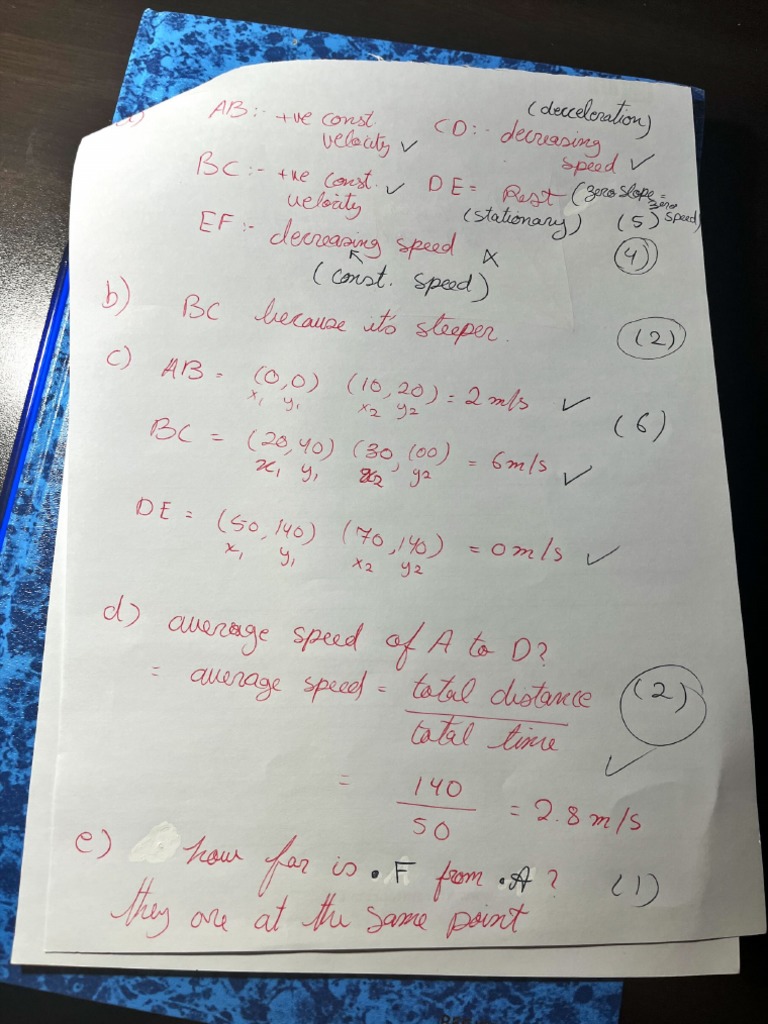 a) AB:- +ve const velocity ✓
CD:- decreasing speed ✓ (decceleration)
BC:- +ve const. velocity ✓
DE = Rest (zero slope = zero speed)
(stationary) (5)
EF:- decreasing speed ✗ (4)
(const. speed)
b) BC because it's steeper. (2)
c) AB = (0,0) (10,20) = 2 m/s ✓
x₁ y₁ x₂ y₂
(6)
BC = (20,40) (30,100) = 6 m/s ✓
x₁ y₁ x₂ y₂
DE = (50,140) (70,140) = 0 m/s ✓
x₁ y₁ x₂ y₂
d) average speed of A to D?
= average speed = total distance (2)
total time ✓
= 140
50 = 2.8 m/s
e) how far is .F from .A? (1)
they are at the same point